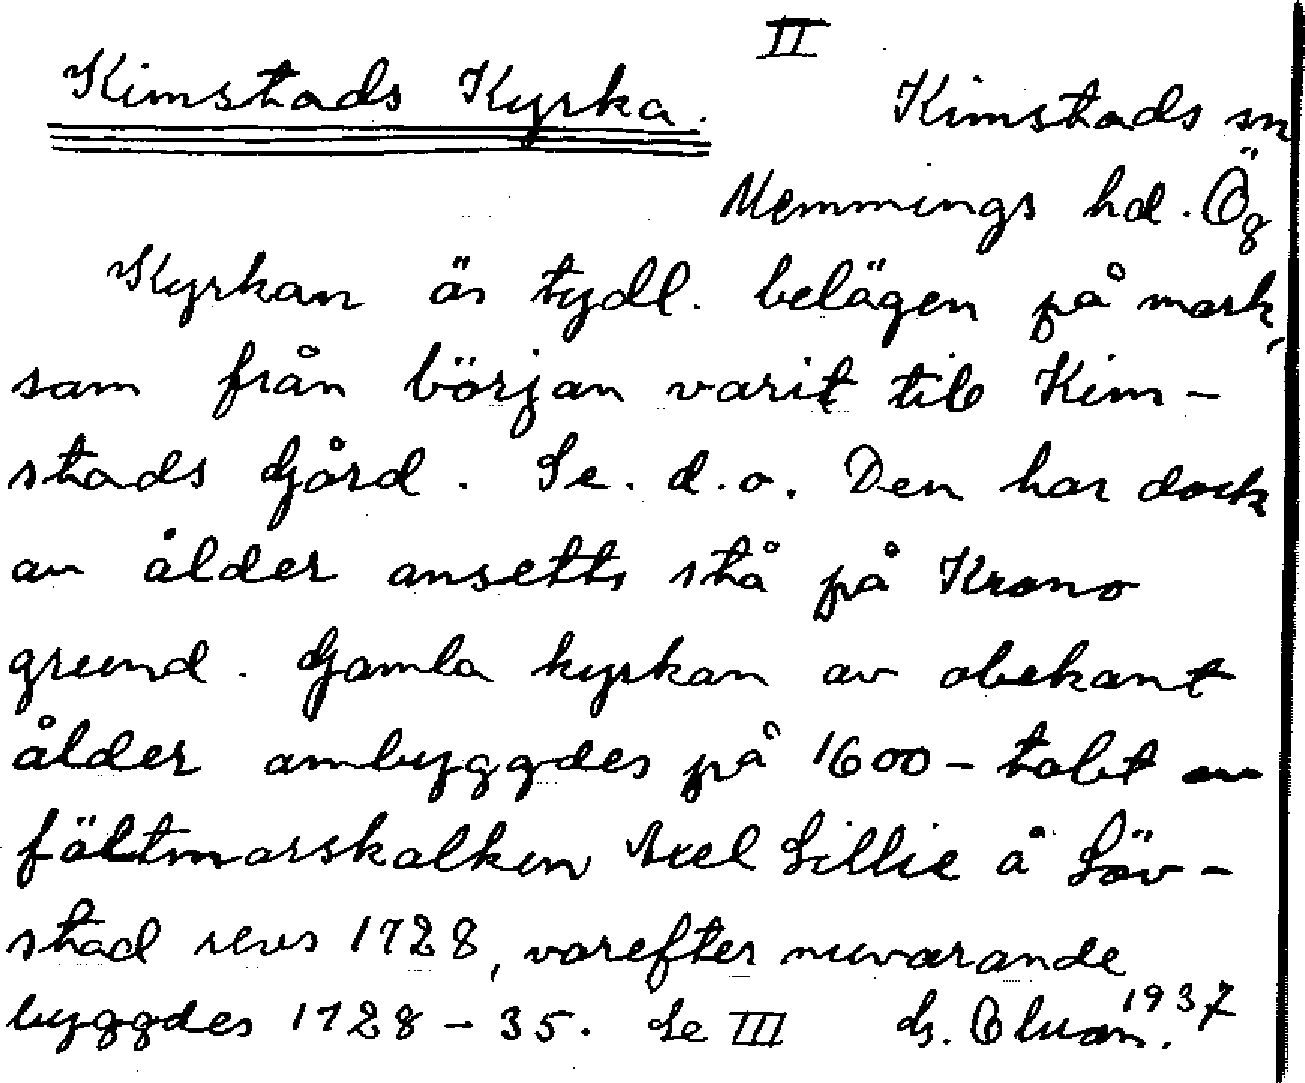 II
Kimstads Kyrka.
Kimstads sn
Memmings hd. Ög
Kyrkan är tydl. belägen på mark,
som från början varit till Kim-
stads Gård. Se. d.o. Den har dock
av ålder ansetts stå på Krono
grund. Gamla kyrkan av obekant
ålder ombyggdes på 1600-talet av
fältmarskalken Axel Lillie å Löv-
stad revs 1728, varefter nuvarande
byggdes 1728-35. Se III
1937